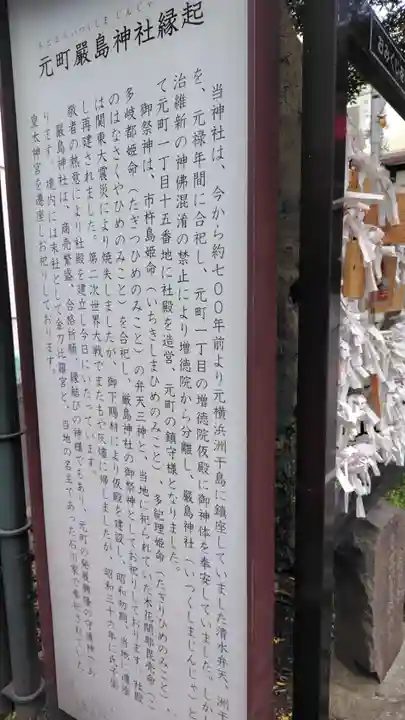 もとまちいつくしまじんじゃ
元町嚴島神社縁起
当神社は、今から約七〇〇年前より元横浜洲干島に鎮座していました清水弁天、洲干
を、元禄年間に合祀し、元町一丁目の増徳院仮殿に御神体を奉安していました。しか
治維新の神佛混淆の禁止により増徳院から分離し、嚴島神社（いつくしまじんじゃ）と
て元町一丁目十五番地に社殿を造営、元町の鎮守様となりました。
御祭神は、市杵島姫命（いちきしまひめのみこと）、多紀理姫命（たぎりひめのみこと）、
多岐都姫命（たきつひめのみこと）の弁天三神と、当地に祀られていた木花開耶毘売命（こ
のはなさくやひめのみこと）を合祀し、嚴島神社の御祭神としてお祀りしております。社殿
は関東大震災により焼失しましたが、御下賜材により仮殿を建設し、昭和初期、当地に遷座
し再建されました。第二次世界大戦でまたもや灰燼に帰しましたが、昭和三十六年に氏子崇
敬者の熱意により社殿を建立し今日にいたっています。
嚴島神社は、商売繁盛、合格祈願、縁結びの神様でもあり、元町の発展興隆の守護神であ
ります。境内には末社として金刀比羅宮と、当地の名主であった石川家で奉祀されていた
皇太神宮を遷座しお祀りしております。
おみくじ